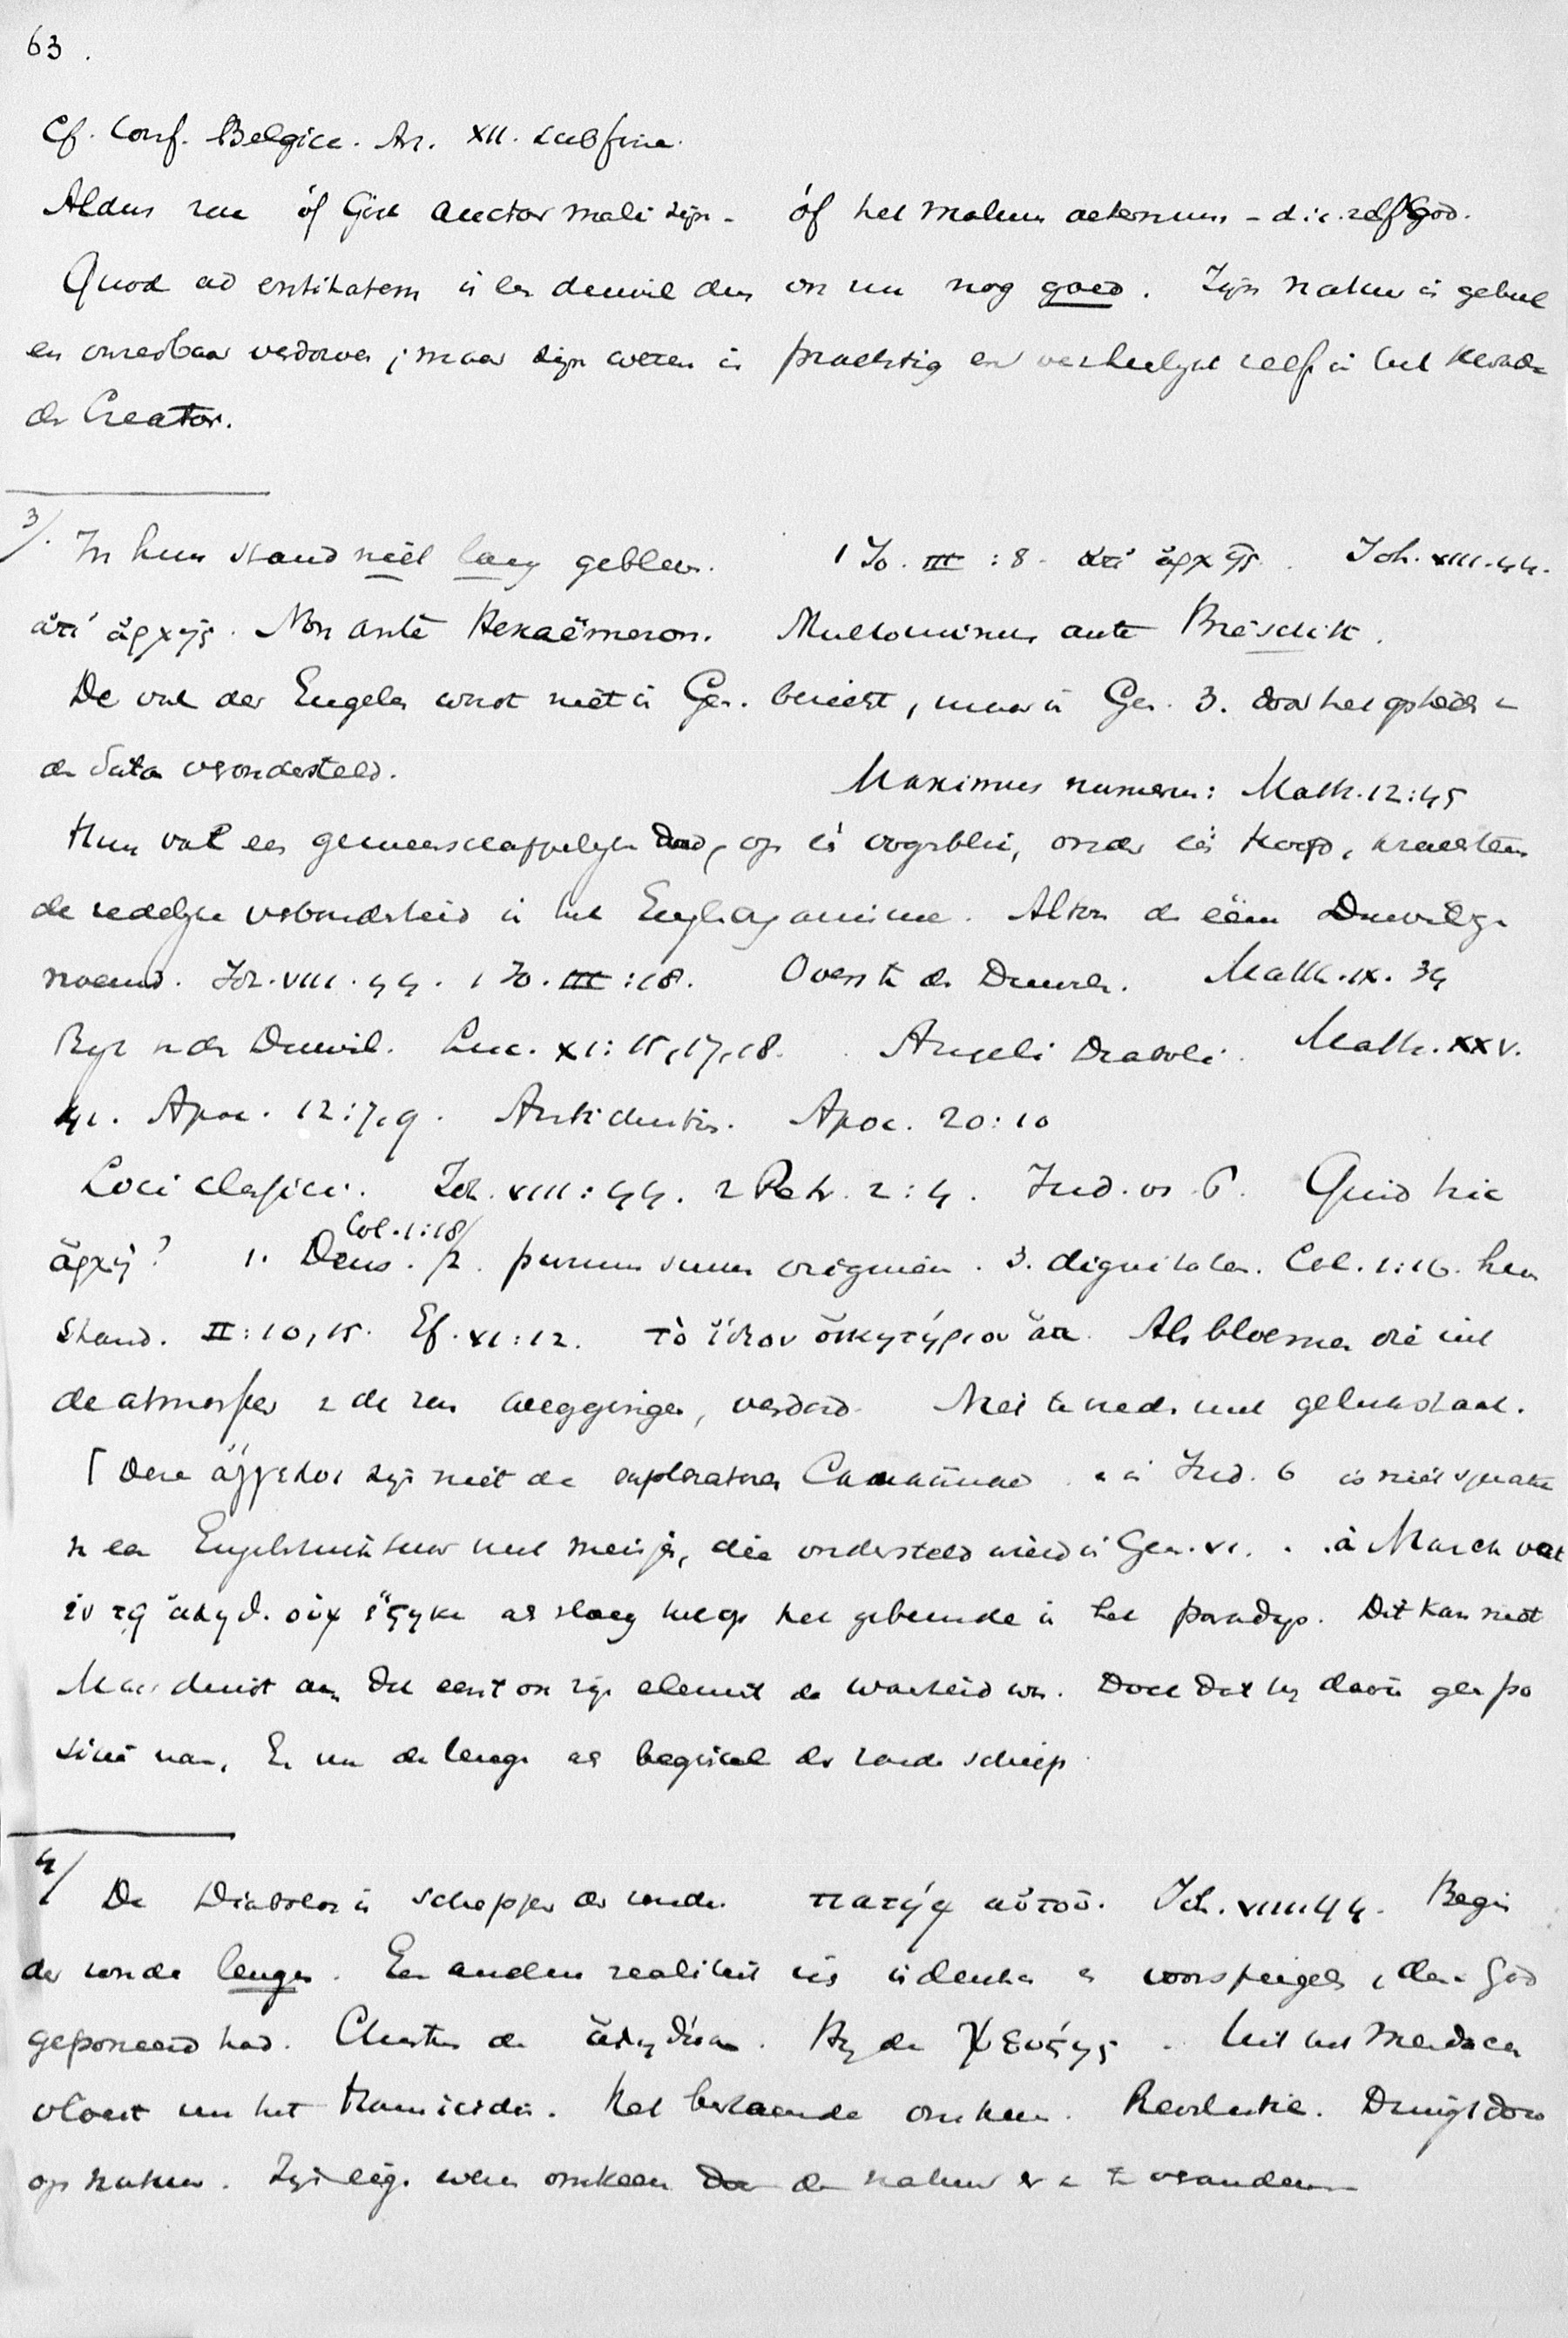 63.
Cf. Conf. Belgica. Ar. XII. sub fine.
Aldus zou óf God auctor mali zijn – óf het malum aeternum – d.i. zelf God.
Quod ad entitatem is de duivel dus ook nu nog goed. Zijn natuur is geheel
en onredbaar verdorven; maar zijn wezen is prachtig en verheerlijkt zelfs in het kwade
den Creator.
3/. In hun stand niet lang gebleven. 1 Jo. III:8. ἀπ' ἀρχῆς. Joh. VIII.44.
ἀπ' ἀρχῆς. Non ante Hexaëmeron. Multo minus ante Breschit.
De val der Engelen wordt niet in Gen. bericht, maar in Gen. 3. door het optreden v.
den Satan verondersteld. Maximus numerus: Matth. 12:45
Hun val een gemeenschappelijke daad, op één oogenblik, onder één hoofd, krachtens
de zedelijke verbondenheid in het Engelorganisme. Altoos de ééne Duivel ge-
noemd. Joh. VIII.44. 1 Jo. III:18. Overste der Duivelen. Matth. IX.34
Rijk v. den Duivel. Luc. XI:15,17,18. Angeli Diaboli. Matth. XXV.
41. Apoc. 12:7,9. Antichristus. Apoc. 20:10
Loci classici. Joh. VIII:44. 2 Petr. 2:4. Jud. vs 6. Quid hic
ἀρχή? 1. Deus. Col. 1:18/ 2. purum suum originem. 3. dignitates. Col. 1:16. hun
stand. II:10,15. Ef. VI:12. τὸ ἴδιον οἰκητήριον Als bloemen die uit
de atmosfeer v. de zon weggingen, verdord. Niet te med. met gelukstaat.
[ Deze ἄγγελοι zijn niet de exploratores en in Jud. 6 is niet sprake
v. een Engelenhuwelijk met meisjes, die ondersteld wierd in Gen. VI. à Marck vat
ἐν τῇ ἀληθ. οὐχ ἕστηκε als sloeg het op het gebeurde in het paradijs. Dit kan niet
Maar duidt aan dat eerst ook zijn element de waarheid was. Doch dat hij daarin geen po-
sitie nam. En nu de leugen als beginsel der zonde schiep.
4/ De Diabolos is schepper der zonde. πατήρ αὐτοῦ. Joh. VIII.44. Begin
der zonde leugen. Een andere realiteit zich indenken en voorspiegelen, dan God
geponeerd had. Christus de ἀλήθεια. Hij de ψεύστης. Uit het mendacium
vloeit nu het Homicidium. Het bestaande omkeeren. Revolutie. Dringt door
op natuur. Zijn eigen wezen omkeeren door de natuur er v. te veranderen